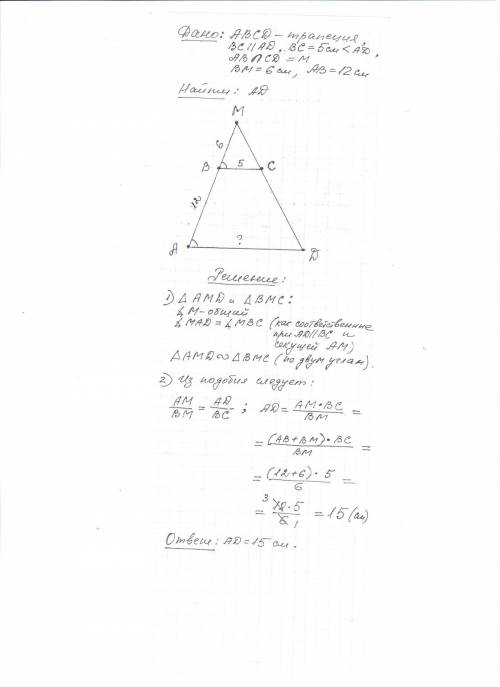 Дано: ABCD – трапеция,
BC ∥ AD, BC = 5 см < AD,
AB ∩ CD = M
BM = 6 см, AB = 12 см
Найти: AD
M
6
B 5 C
12
A ? D
Решение:
1) △ AMD и △ BMC:
∠ M - общий
∠ MAD = ∠ MBC (как соответственные
при AD ∥ BC и
секущей AM)
△ AMD ∞ △ BMC (по двум углам).
2) Из подобия следует:
AM/BM = AD/BC ; AD = AM · BC/BM =
= (AB + BM) · BC/BM =
= (12 + 6) · 5/6 =
= 3 18 · 5/6 1 = 15 (см)
Ответ: AD = 15 см.